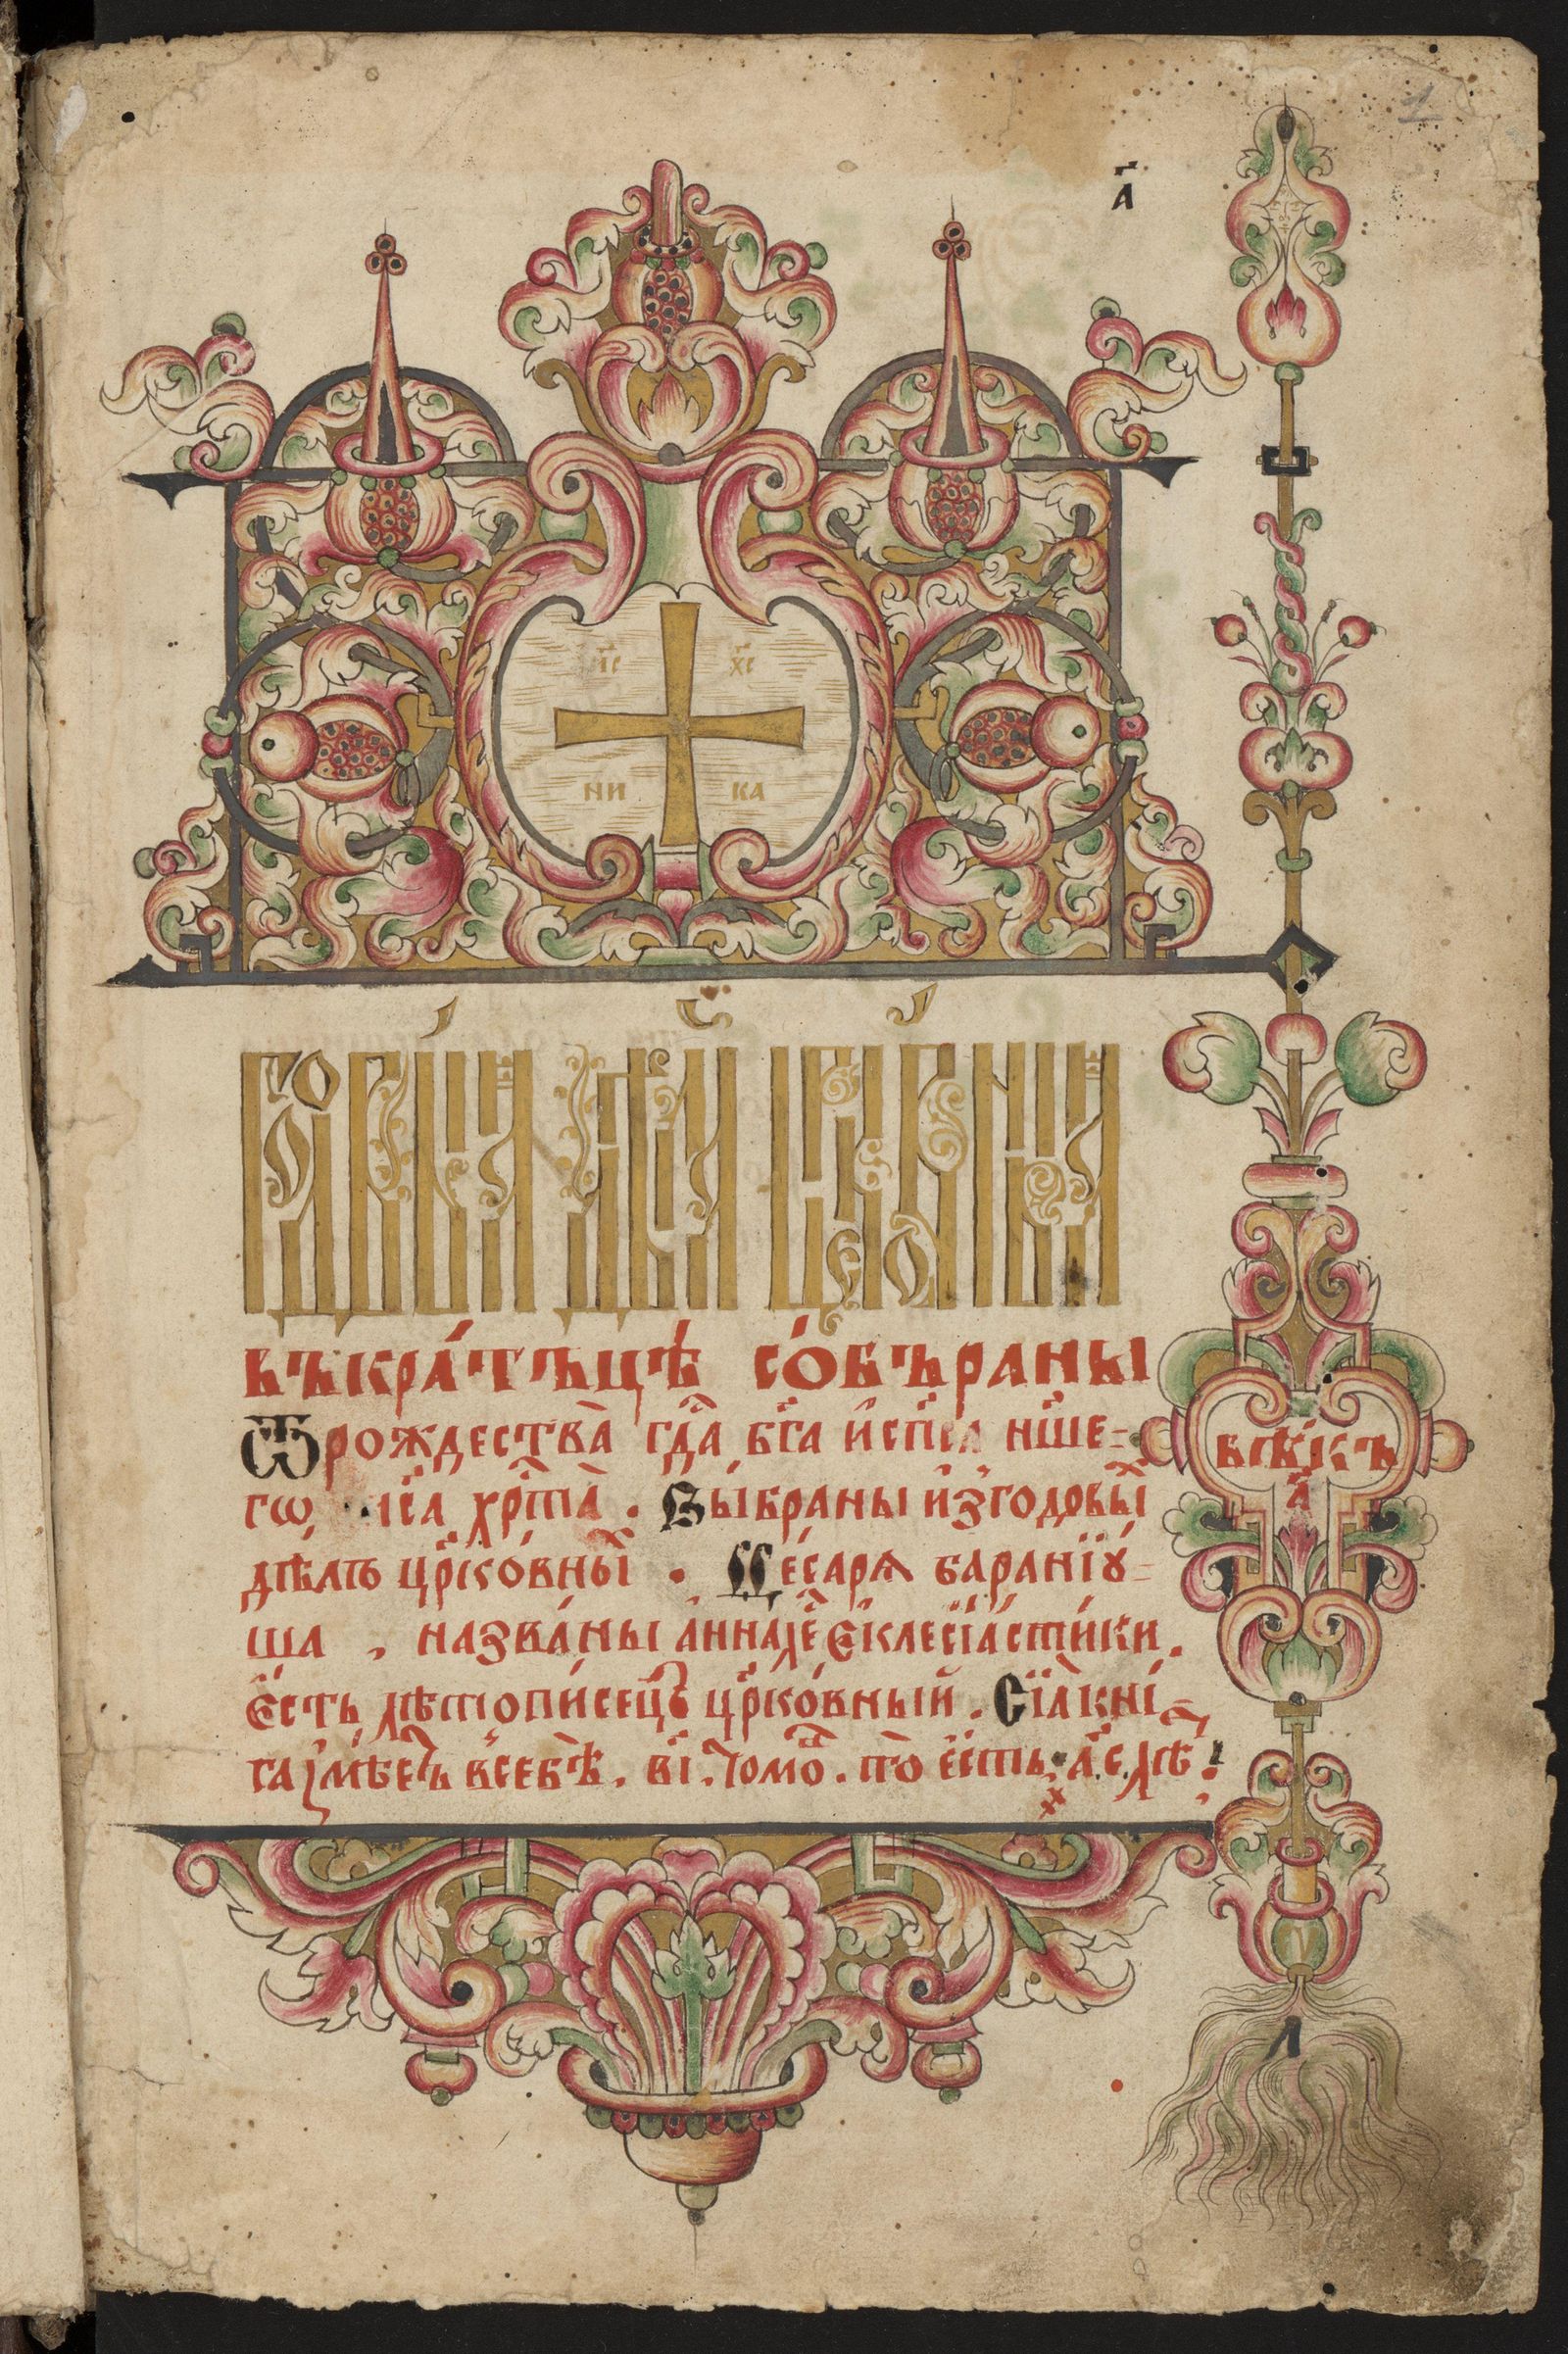 1
а҃
І҃С Х҃С
НИ КА
ГОДОВЫѦ ДѢѦНІѦ ЦЕРКОВНЫѦ
вькра́тъцѣ со́бъраны
Ѿ рождества̀ гдⷭ҇а бг҃а и҆ сп҃са нш҃е-
гѡ і҆са хрⷭ҇та̀ . Вы́браны и҆з̾ годовы́
дѣѧлъ цр҃ко́вны . Це́саря баранїꙋ-
ша , назва́ны а҆нналѐ є҆клесїа́сти́ки .
є҆сть лѣтопи́сецъ цр҃ко́вный . Сїѧ̀ кни́
га и҆мѣетъ всебѣ̀ . в҃і . то́мо . то̀ є҆сть а҃ . с лѣ
вѣ́къ
а҃